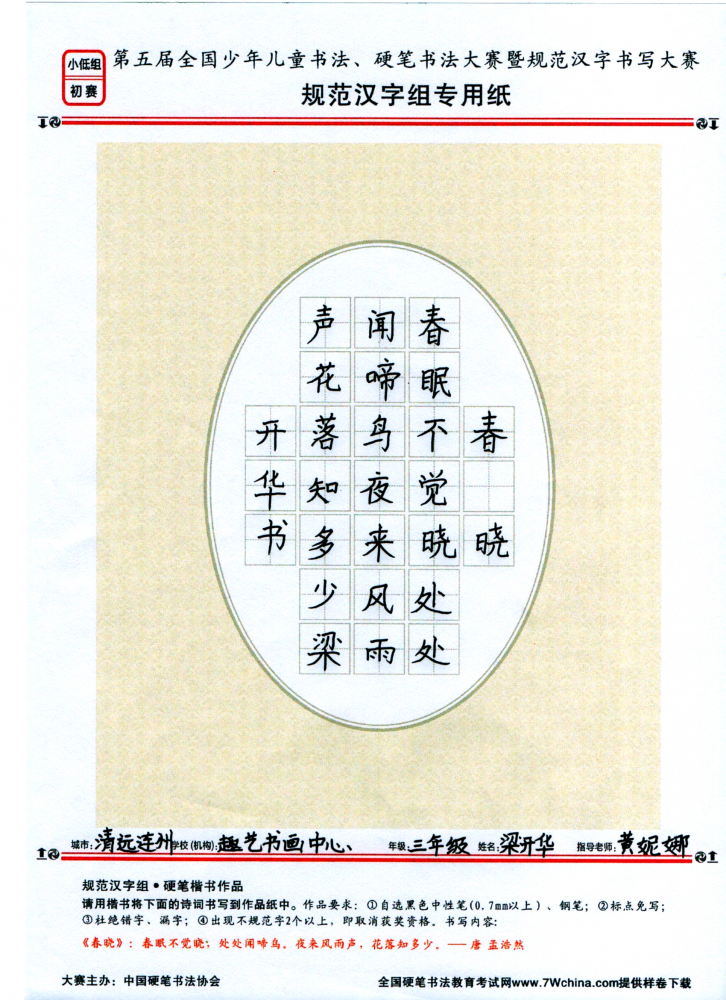 小低组
初赛
第五届全国少年儿童书法、硬笔书法大赛暨规范汉字书写大赛
规范汉字组专用纸
春晓
春眠不觉晓处处
闻啼鸟夜来风雨
声花落知多少梁
开华书
城市:清远连州学校(机构):趣艺书画中心、年级:三年级 姓名:梁开华 指导老师:黄妮娜
规范汉字组•硬笔楷书作品
请用楷书将下面的诗词书写到作品纸中。作品要求：①自选黑色中性笔(0.7mm以上)、钢笔；②标点免写；
③杜绝错字、漏字；④出现不规范字2个以上，即取消获奖资格。书写内容:
《春晓》：春眠不觉晓；处处闻啼鸟。夜来风雨声，花落知多少。——唐 孟浩然
大赛主办：中国硬笔书法协会
全国硬笔书法教育考试网www.7Wchina.com提供样卷下载